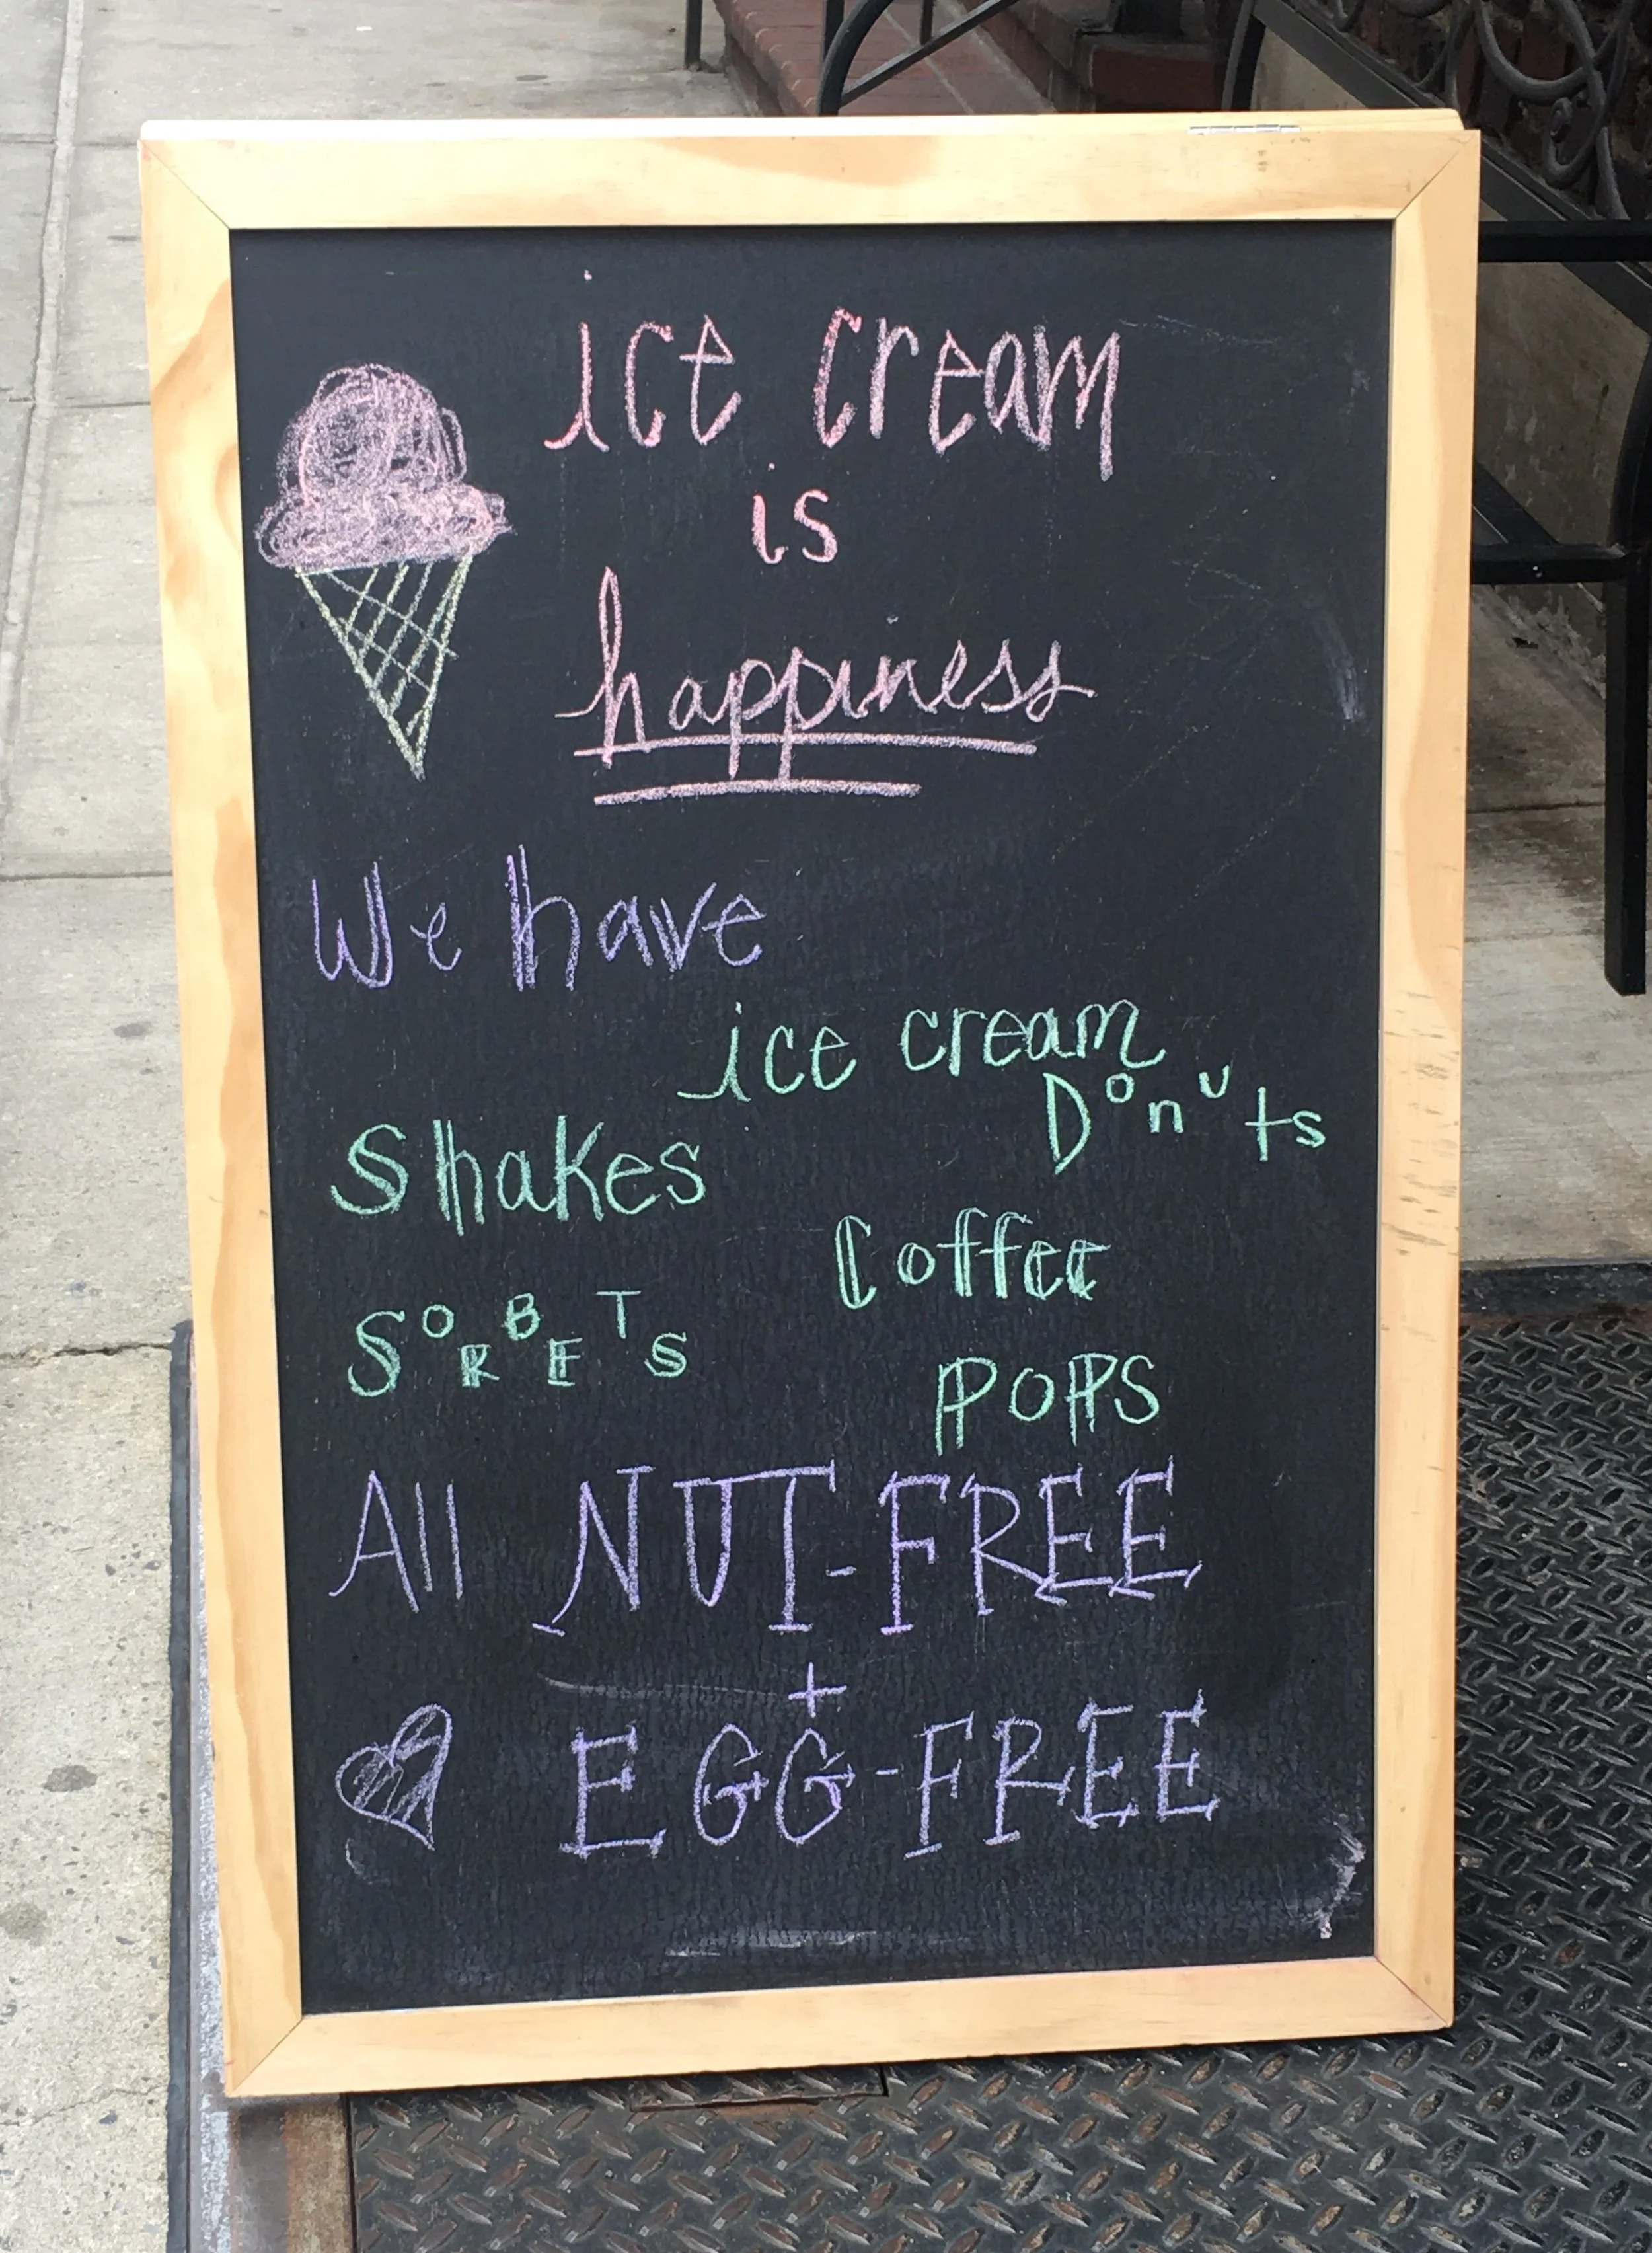 ice cream
is
happiness
We have
ice cream
Donuts
Shakes
Coffee
SORBETS
POPS
All NUT-FREE
+
EGG-FREE